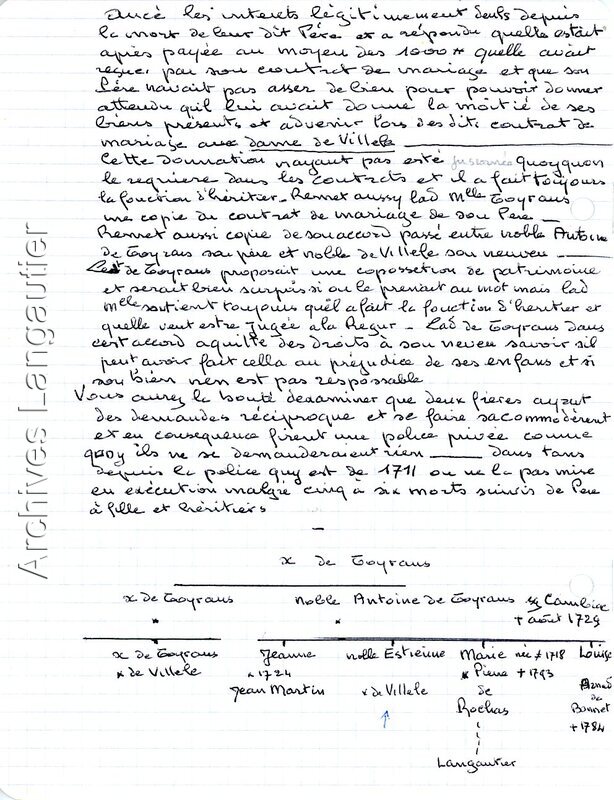 avcé les interets légitimement deubs depuis
la mort de leur dit Père et a répondu quelle estait
après payée au moyen des 1000 # quelle avait
reçue par son contrat de mariage et que son
Père navait pas assez de bien pour pouvoir donner
attendu qu'il lui avait donné la moitié de ses
biens présents et advenir lors des diti contrat de
mariage aux dame de Villele
Cette donnation nayant pas esté quoyquon
le requiere dans les contracts et il a fait toujours
la fonction d'héritier. Remet aussy lad Mlle Toyrans
une copie du contrat de mariage de son Pere
Remet aussi copie de son accord passé entre noble Antoine
de Toyrans son père et noble de Villele son neveu
Led de Toyrans proposait une copossetion de patrimoine
et serait bien surpris si on le prenait au mot mais lad
Mlle soutient toujours quel a fait la fonction d'heritier et
quelle veut estre Jugée a la Regur - Lad de Toyrans dans
cert accord aquitte des droits à son neveu savoir sil
peut avoir fait cella au préjudice de ses enfans et si
son bien nen est pas respossable
Vous aurez la bonté dexaminer que deux freres ayant
des demandes réciproque et se faire sacommodèrent
et en consequence firent une police privée comme
quoy ils ne se demanderaient rien dans tans
depuis la police quy est de 1711 on ne la pas mise
en exécution malgré cinq à six morts suivis de Pere
à fille et héritiers
x de Toyrans
x de Toyrans noble Antoine de Toyrans Cambiac
+ août 1729
x de Toyrans Jeanne noble Estienne Marie née 1718 Louise
x de Villele x 1724 x de Villele x Pierre + 1793
Jean Martin de Rochas de Bonnet
+ 1784
Langautier
Archives Langautier